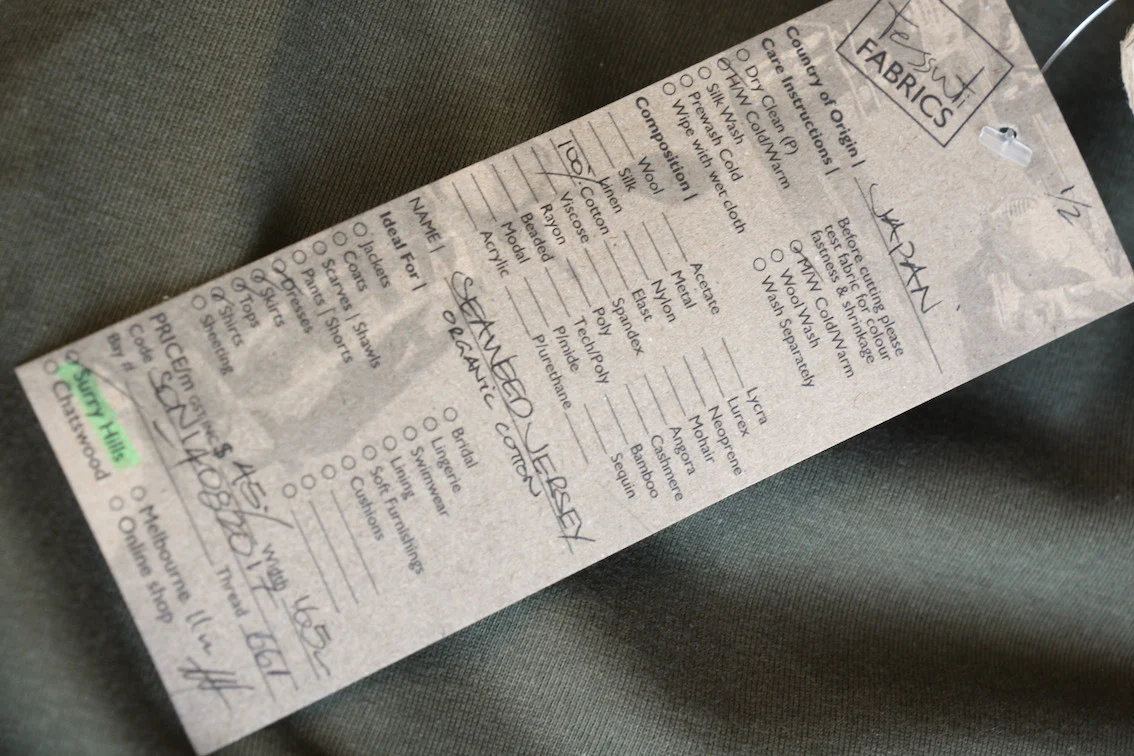 Tessuti
FABRICS
1/2
Country of Origin | JAPAN
Care Instructions |
Before cutting please
test fabric for colour
fastness & shrinkage
Dry Clean (P)
H/W Cold/Warm
Silk Wash
Prewash Cold
Wipe with wet cloth
M/W Cold/Warm
Wool Wash
Wash Separately
Composition |
Wool
Silk
Linen
100% Cotton
Viscose
Rayon
Beaded
Modal
Acrylic
Acetate
Metal
Nylon
Elast
Spandex
Poly
Tech/Poly
P/mide
P/urethane
Lycra
Lurex
Neoprene
Mohair
Angora
Cashmere
Bamboo
Sequin
NAME | SEAWEED JERSEY
ORGANIC COTTON
Ideal For |
Jackets
Coats
Scarves | Shawls
Pants | Shorts
Dresses
Skirts
Tops
Shirts
Sheeting
Bridal
Lingerie
Swimwear
Lining
Soft Furnishings
Cushions
PRICE/m GST INC $ 45/ Width 165
Code Thread 661
Buy #
Surry Hills
Chatswood
Melbourne
Online shop